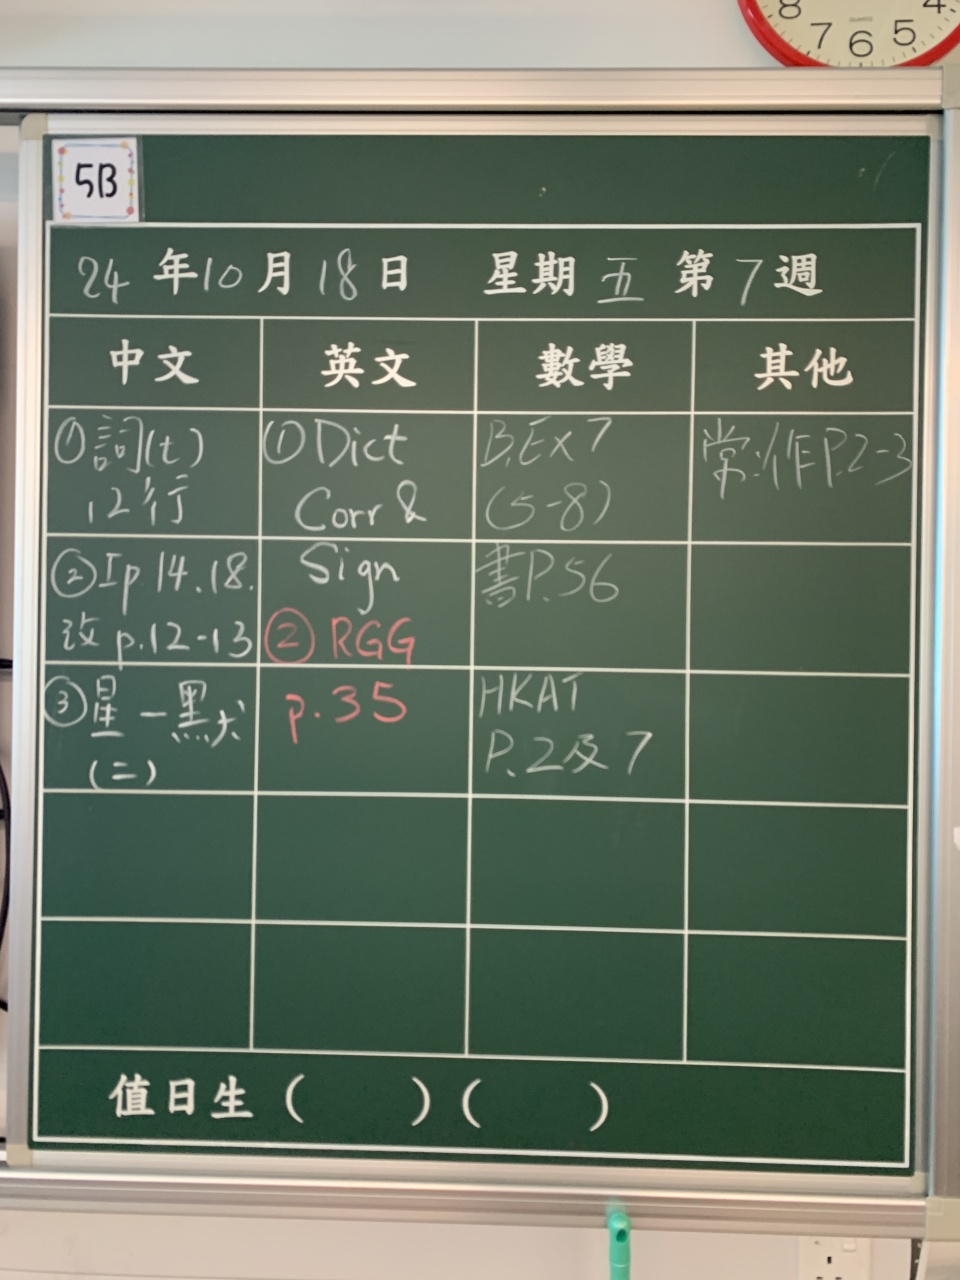 8 7 6 5 4
QUARTZ
5B
24 年 10 月 18 日 星期 五 第 7 週
中文 英文 數學 其他
①詞(t)
12行
②Ip 14.18.
改 p.12-13
③星一默
(二)
①Dict
Corr &
Sign
② RGG
p.35
B.Ex7
(5-8)
書P.56
HKAT
P.2及7
常:作P.2-3
值日生 ( ) ( )